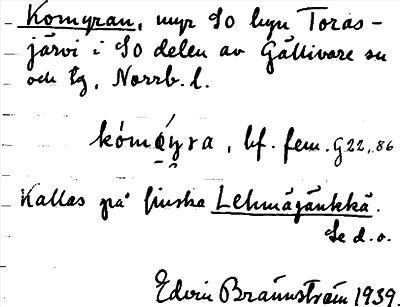 Komyran, myr SO byn Toras-
järvi i SO delen av Gällivare sn
och tg, Norrb. l.
kómỳra, bf. fem. G22,86
Kallas på finska Lehmäjänkkä.
Se d.o.
Edvin Brännström 1939.